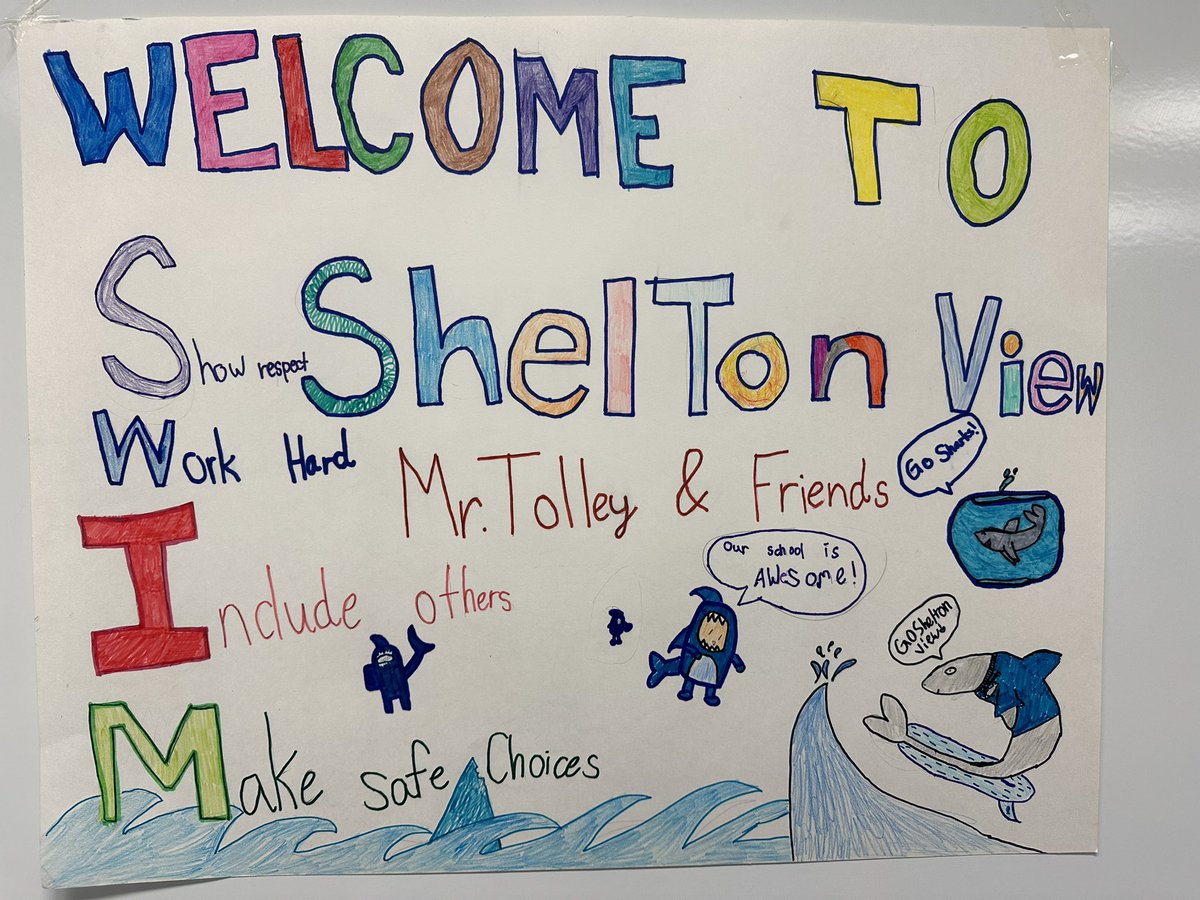 WELCOME TO
Show respect
ShelTon View
Work Hard
Mr. Tolley & Friends
Go Sharks!
Our school is
AWeSome!
Include others
GO Shelton
View
Make safe Choices